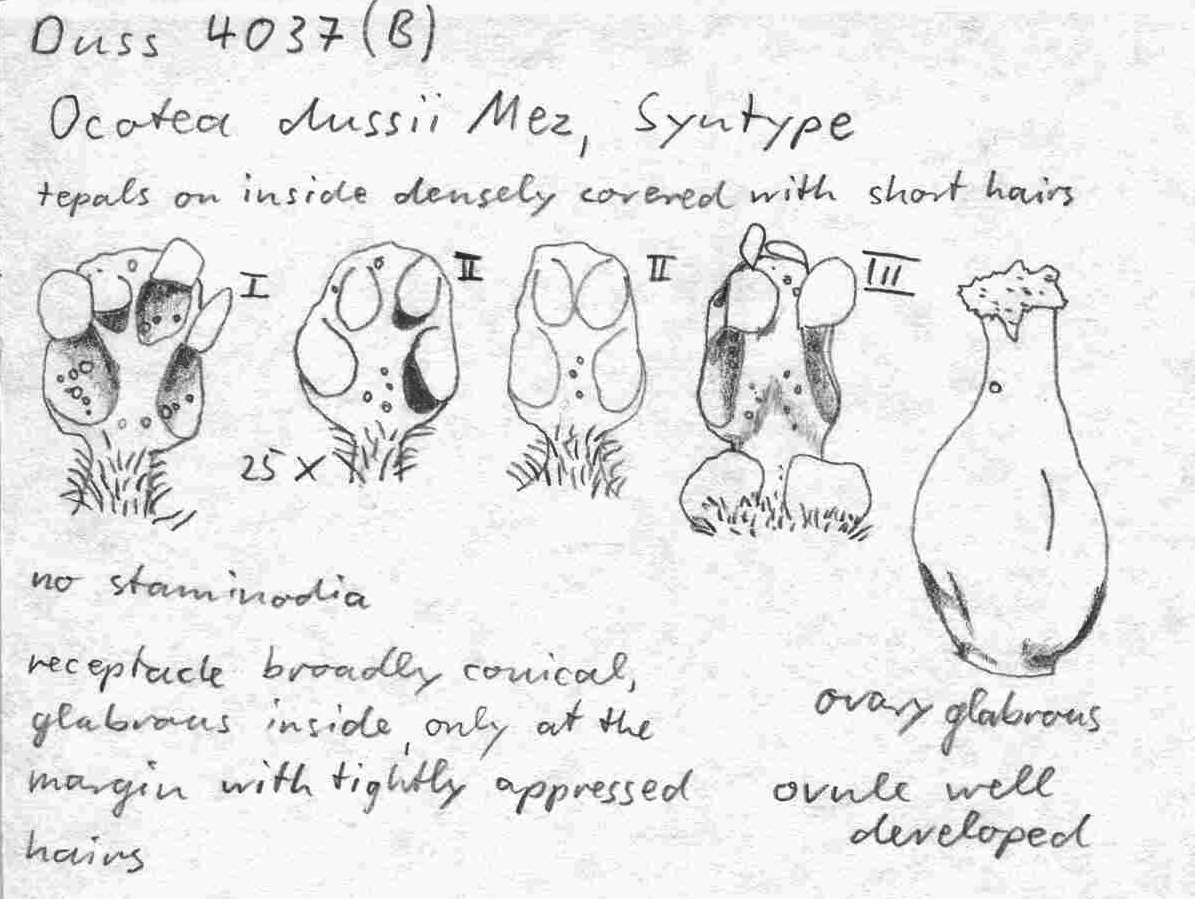 Duss 4037 (B)
Ocotea dussii Mez, Syntype
tepals on inside densely covered with short hairs
I
II
II
III
25 x
no staminodia
receptacle broadly conical,
glabrous inside, only at the
margin with tightly appressed
hairs
ovary glabrous
ovule well
developed